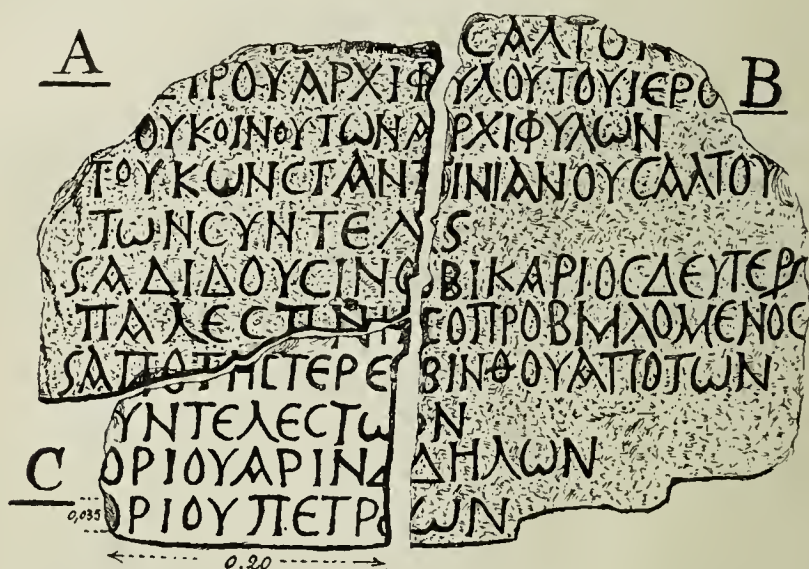 A
B
CΑΛΤΟΝ
ΕΤΡΟΥΑΡΧΙΦΥΛΟΥΤΟΥΙΕΡΟ
ΟΥΚΟΙΝΟΥΤωΝΑΡΧΙΦΥΛωΝ
ΤΟΥΚωΝCΤΑΝΤΙΝΙΑΝΟΥCΑΛΤΟΥ
ΤωΝCΥΝΤΕΛS
SΑΔΙΔΟΥCΙΝΟΒΙΚΑΡΙΟCΔΕΥΤΕΡS
ΠΑΛΕCΤΙΝΗCΟΠΡΟΒΑΛΟΜΕΝΟC
SΑΠΟΤΗCΤΕΡΕΒΙΝΘΟΥΑΠΟΤωΝ
ΥΝΤΕΛΕCΤωΝ
C
ΟΡΙΟΥΑΡΙΝΔΗΛωΝ
0,035
ΟΡΙΟΥΠΕΤΡωΝ
0.20